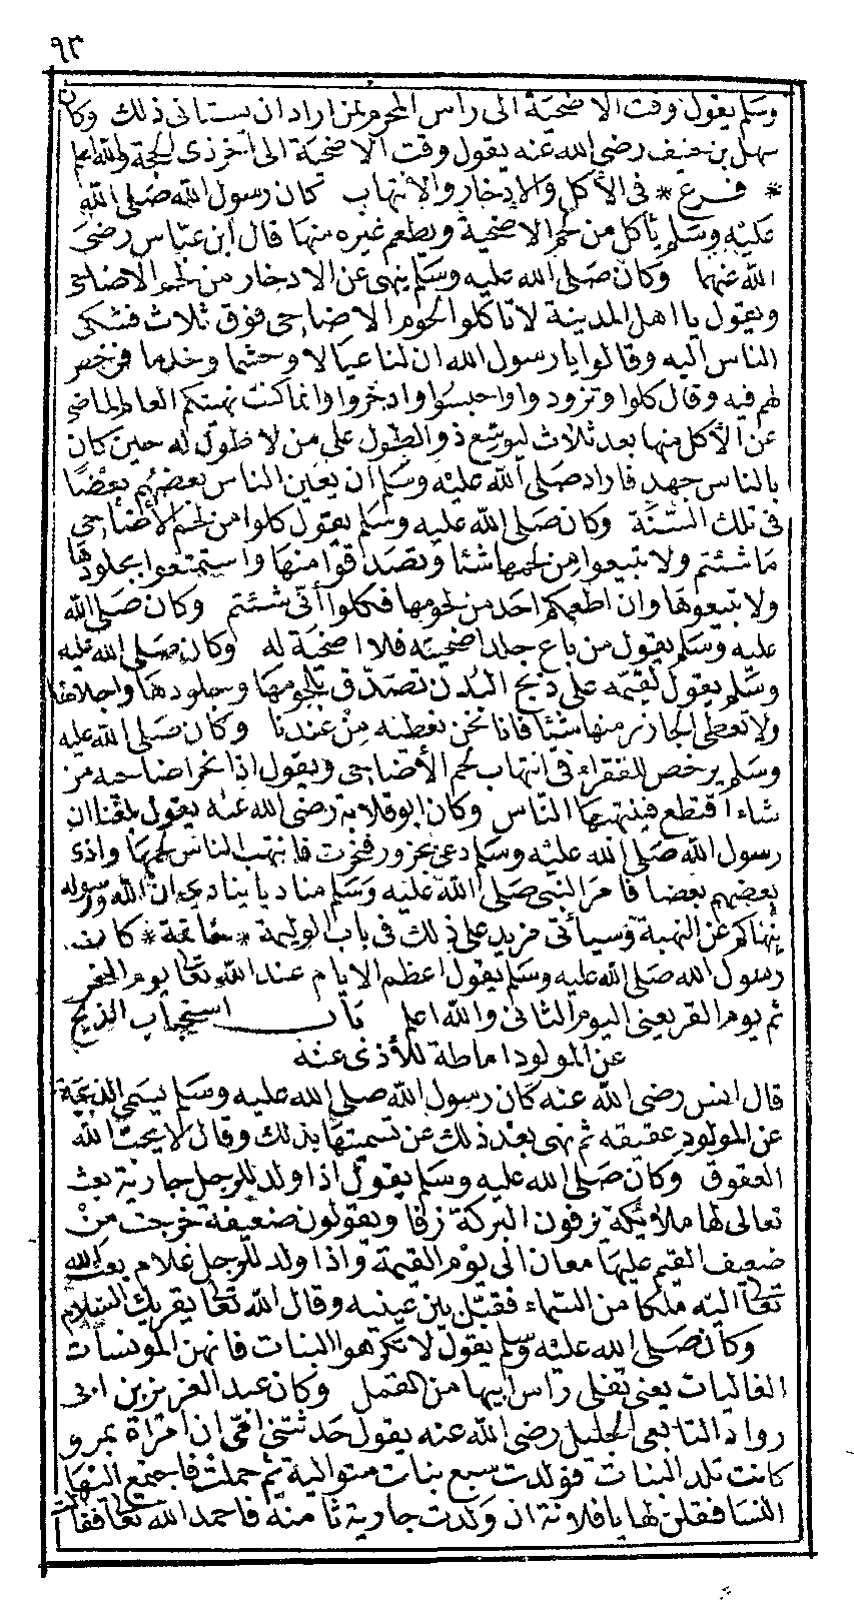 ٩٣
وسلم يقول وقت الاضحية الى راس المحرم لمن اراد ان يستانى ذلك وكان
سهل بن حنيف رضي الله عنه يقول وقت الاضحية الى اخر ذى الحجة والله اعلم
* فرع * فى الأكل والادخار والانتهاب كان رسول الله صلى الله
عليه وسلم يأكل من لحم الاضحية ويطعم غيره منها قال ابن عباس رضى
الله عنهما وكان صلى الله عليه وسلم ينهى عن الادخار من لحم الاضاحى
ويقول يا اهل المدينة لا تاكلوا لحوم الاضاحى فوق ثلاث فشكى
الناس اليه وقالوا يا رسول الله ان لنا عيالا وحشما وخدما فرخص
لهم فيه وقال كلوا وتزودوا واحبسوا وادخروا وانما كنت نهيتكم العام الماضى
عن الأكل منها بعد ثلاث ليوسع ذو الطول على من لا طول له حين كان
بالناس جهد فاراد صلى الله عليه وسلم ان يعين الناس بعضهم بعضا
فى تلك السنة وكان صلى الله عليه وسلم يقول كلوا من لحم الأضاحى
ما شئتم ولا تبيعوا من لحمها شئا وتصدقوا منها واستمتعوا بجلودها
ولا تبيعوها وان اطعمكم احد من لحومها فكلوا أنى شئتم وكان صلى الله
عليه وسلم يقول من باع جلد اضحيته فلا اضحية له وكان صلى الله عليه
وسلم يقول لقيمه على ذبح البدن تصدق بلحومها وجلودها واجلالها
ولا تعطى الجازر منها شيئا فانا نحن نعطيه من عندنا وكان صلى الله عليه
وسلم يرخص للفقراء فى انتهاب لحم الأضاحى ويقول اذا نحر اضاحيه من
شاء اقتطع فينتهبها الناس وكان ابو قلابة رضى الله عنه يقول بلغنا ان
رسول الله صلى الله عليه وسلم دعى بجزور فنحرت فانتهب الناس لحمها واذى
بعضهم بعضا فامر النبى صلى الله عليه وسلم مناديا ينادى ان الله ورسوله
ينهاكم عن النهبة وسيأتى مزيد على ذلك فى باب الوليمة * خاتمة * كان
رسول الله صلى الله عليه وسلم يقول اعظم الايام عند الله تعالى يوم النحر
ثم يوم القر يعنى اليوم الثانى والله اعلم باب استحباب الذبح
عن المولود اماطة للأذى عنه
قال انس رضى الله عنه كان رسول الله صلى الله عليه وسلم يسمى الذبيحة
عن المولود عقيقه ثم نهى بعد ذلك عن تسميتها بذلك وقال لا يحب الله
العقوق وكان صلى الله عليه وسلم يقول اذا ولد للرجل جارية بعث
تعالى لها ملائكة يزفون البركة زفا ويقولون ضعيفة خرجت من
ضعيف القيم عليها معان الى يوم القيمة واذا ولد للرجل غلام بعث الله
تعالى اليه ملكا من السماء فقبل بين عينيه وقال الله تعالى يقريك السلام
وكان صلى الله عليه وسلم يقول لا تكرهوا البنات فانهن المونسات
الغاليات يعنى تفلى راس ابيها من القمل وكان عبد العزيز بن ابى
رواد التابعى الجليل رضى الله عنه يقول حدثتنى امى ان امراة بمرو
كانت تلد البنات فولدت سبع بنات متوالية ثم حملت فاجتمع اليها
النسا فقلن لها يا فلانة ان ولدت جارية ثامنة فاحمد الله تعالى فقالت